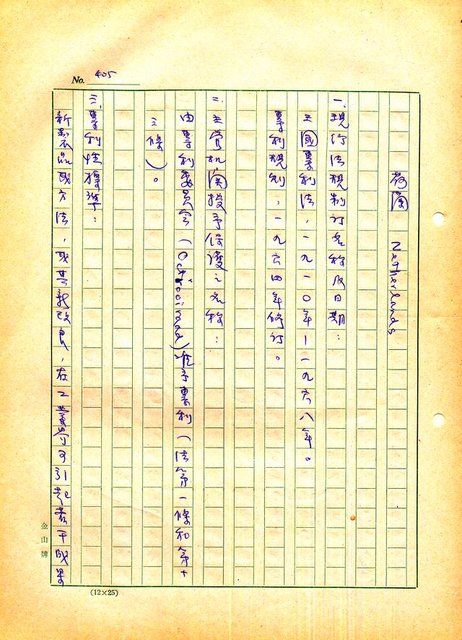 No. 405
荷蘭 Netherlands
一、現行法規制訂名稱及日期:
王國專利法,一九一〇年—一九六八年。
專利規則,一九六四年修訂。
二、主管機關授予保護之名稱:
由專利委員會(Octrooiraad)准予專利(法第一條和第十
三條)。
三、專利性標準:
新製品或方法,或其新改良,在工業界可引起若干成果
金山牌
(12×25)